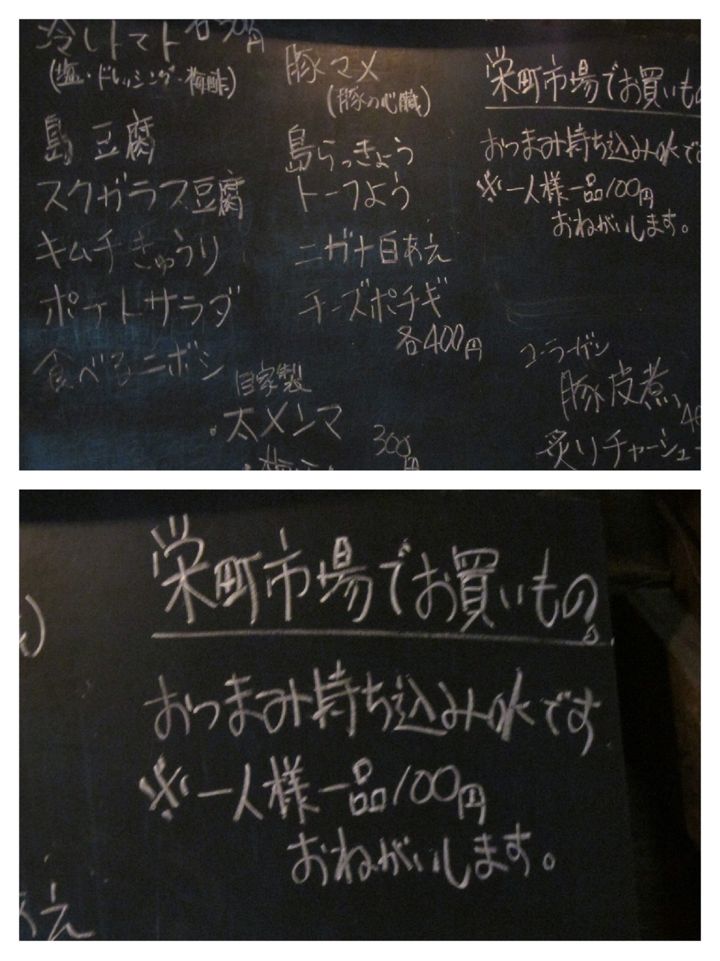 冷しトマト 各300円
(塩・ドレッシング・梅酢)
島豆腐
スクガラス豆腐
キムチきゅうり
ポテトサラダ
食べるニボシ
豚マメ
(豚の心臓)
島らっきょう
トーフよう
ニガナ白あえ
チーズポチギ
各400円
自家製
・太メンマ
300円
栄町市場でお買いもの
おつまみ持ち込みokです
※一人様一品100円
おねがいします。
コラーゲン
豚皮煮
炙りチャーシュー
栄町市場でお買いもの。
おつまみ持ち込みokです
※一人様一品100円
おねがいします。
あえ